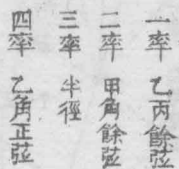 一率　乙丙餘弦
二率　甲角餘弦
三率　半徑
四率　乙角正弦